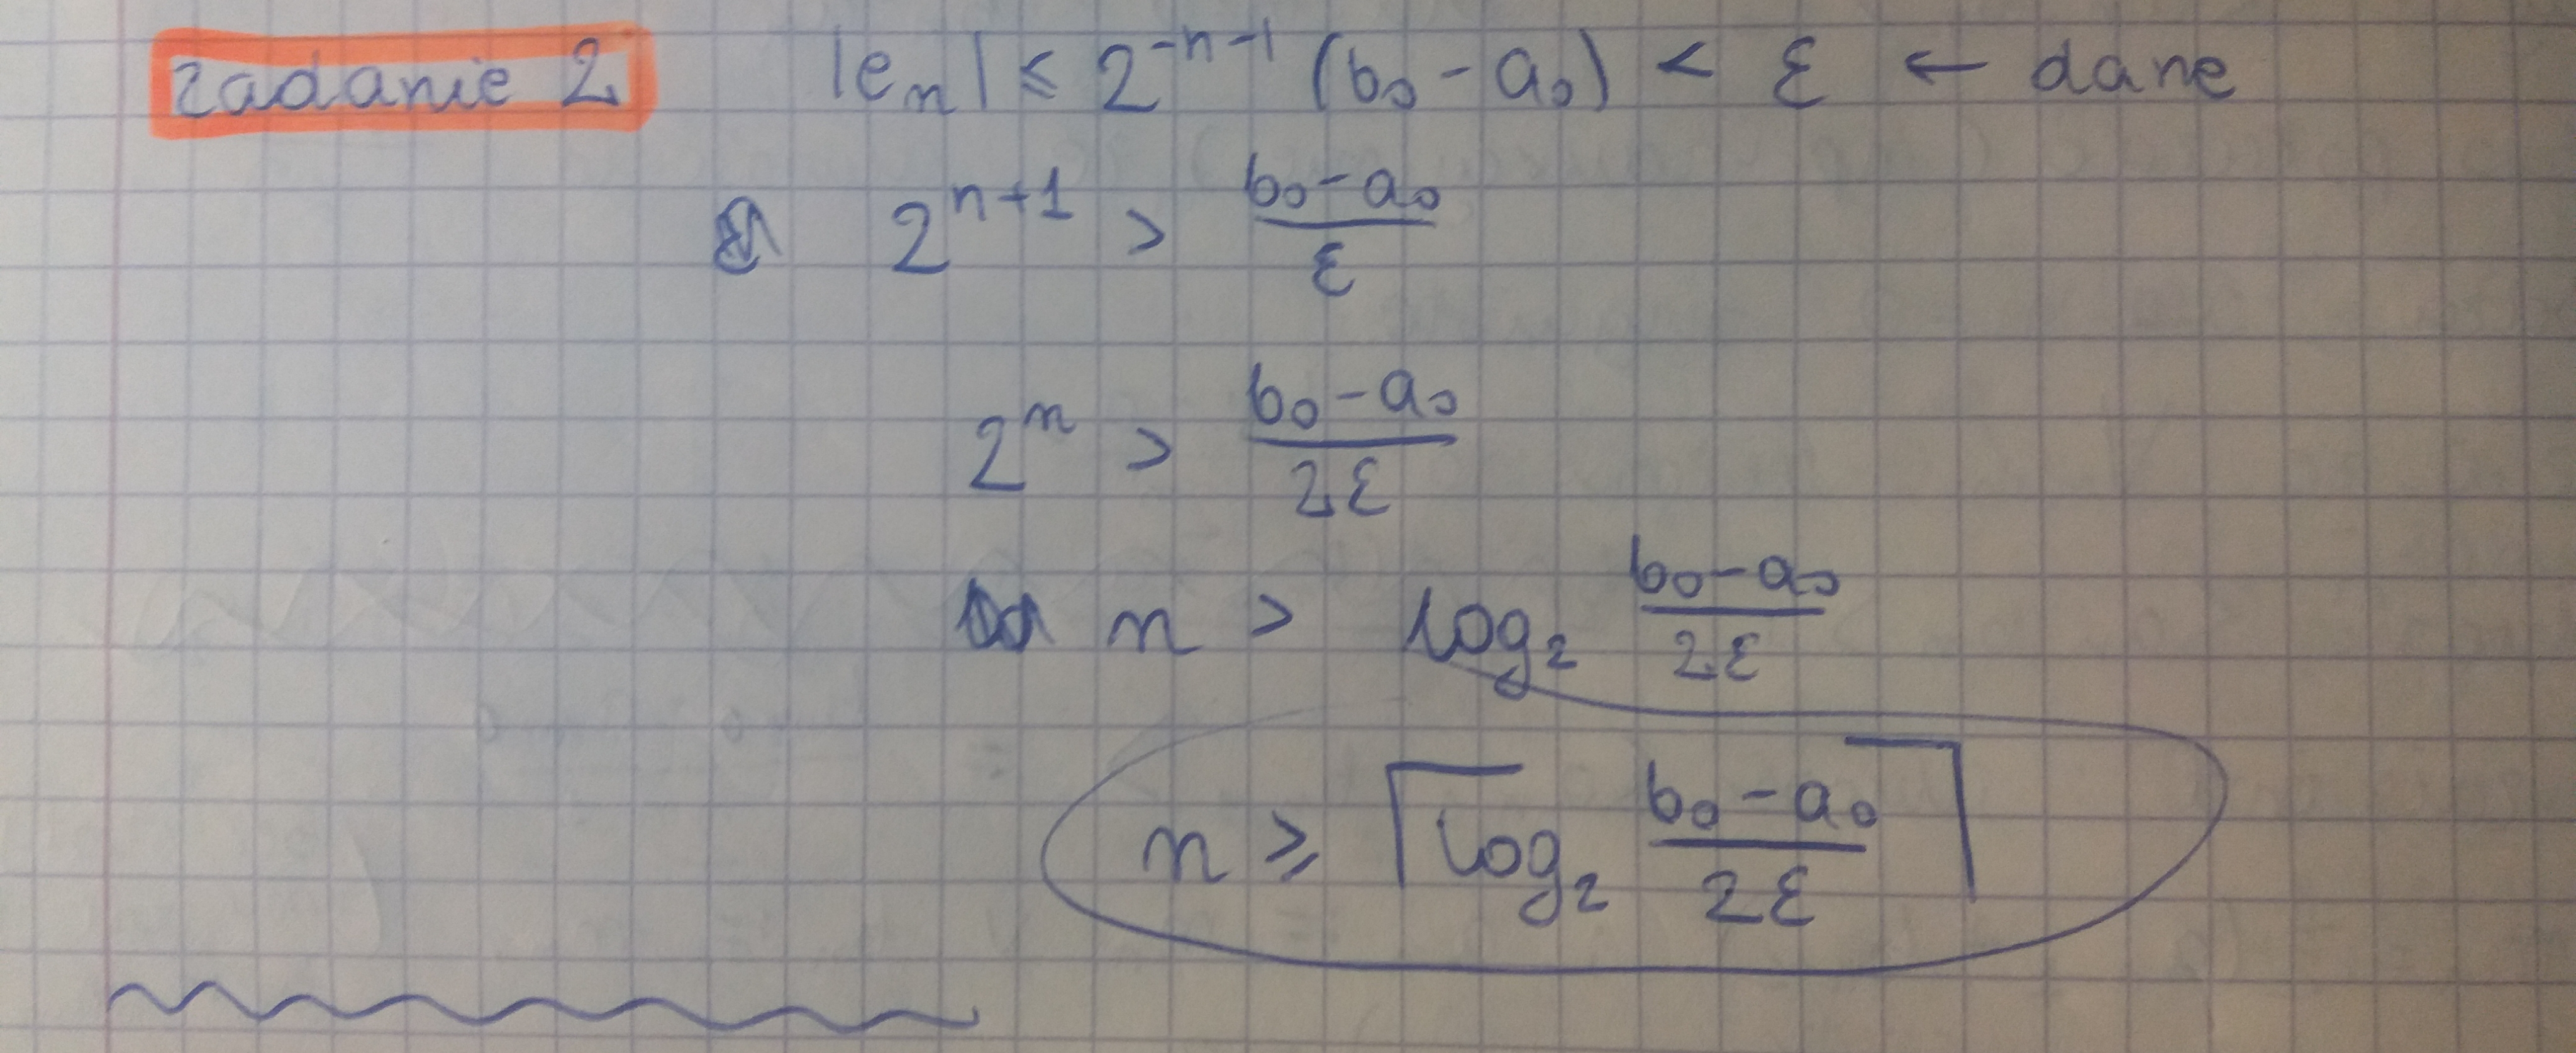 zadanie 2 |eₙ| ≤ 2⁻ⁿ⁻¹ (b₀ - a₀) < ε ← dane
2ⁿ⁺¹ > (b₀ - a₀)/ε
2ⁿ > (b₀ - a₀)/2ε
n > log₂ (b₀ - a₀)/2ε
n ≥ ⌈log₂ (b₀ - a₀)/2ε⌉